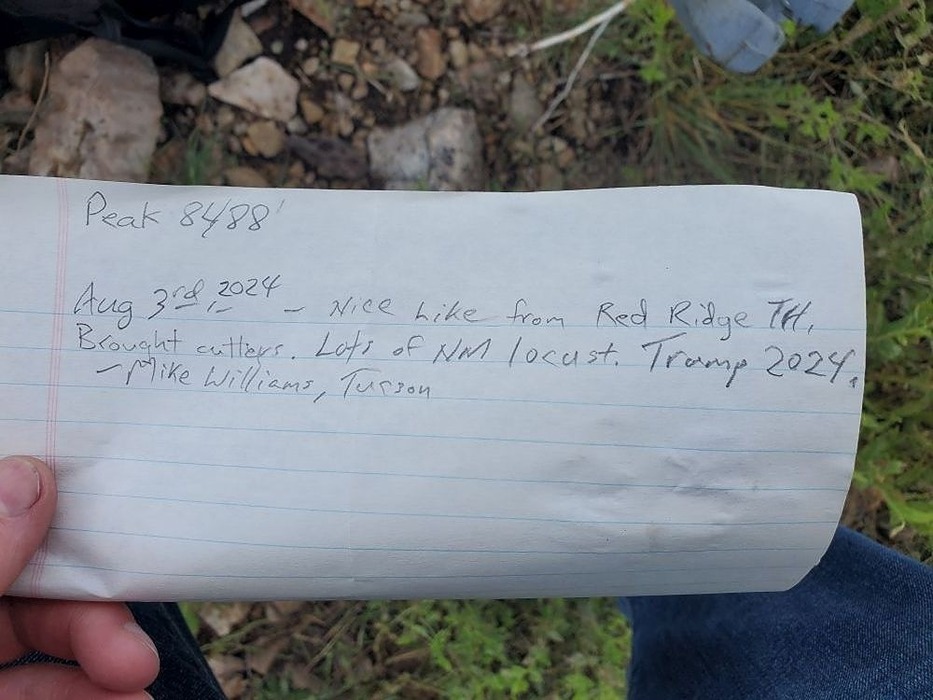 Peak 8488'
Aug 3rd, 2024 - Nice hike from Red Ridge TH.
Brought cutters. Lots of NM locust. Trump 2024.
- Mike Williams, Tucson